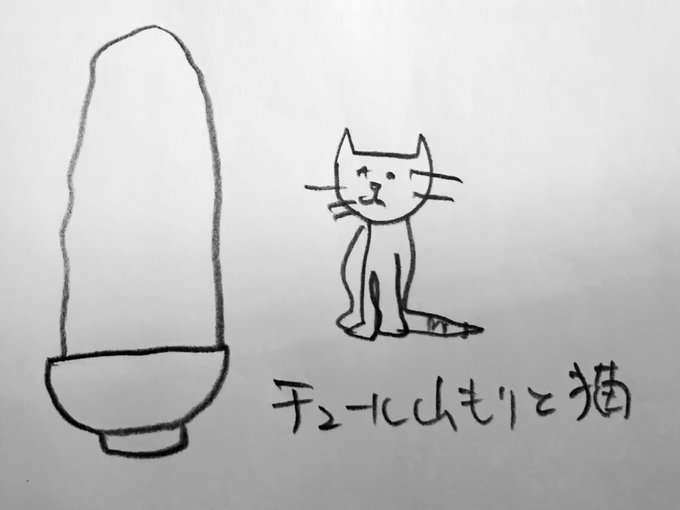 チュール山もりと猫